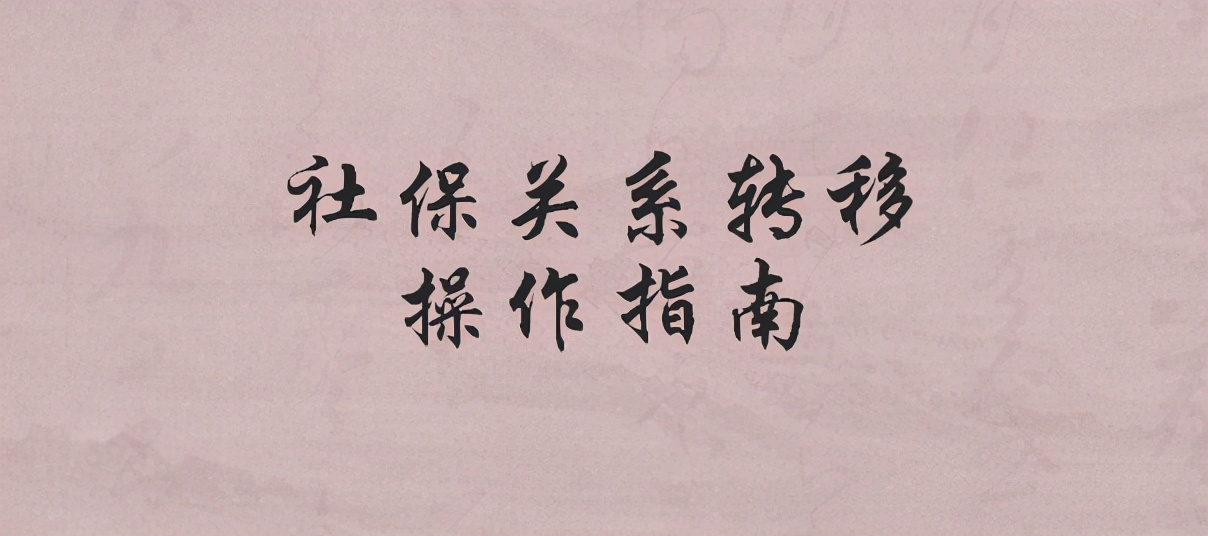 社保关系转移
操作指南